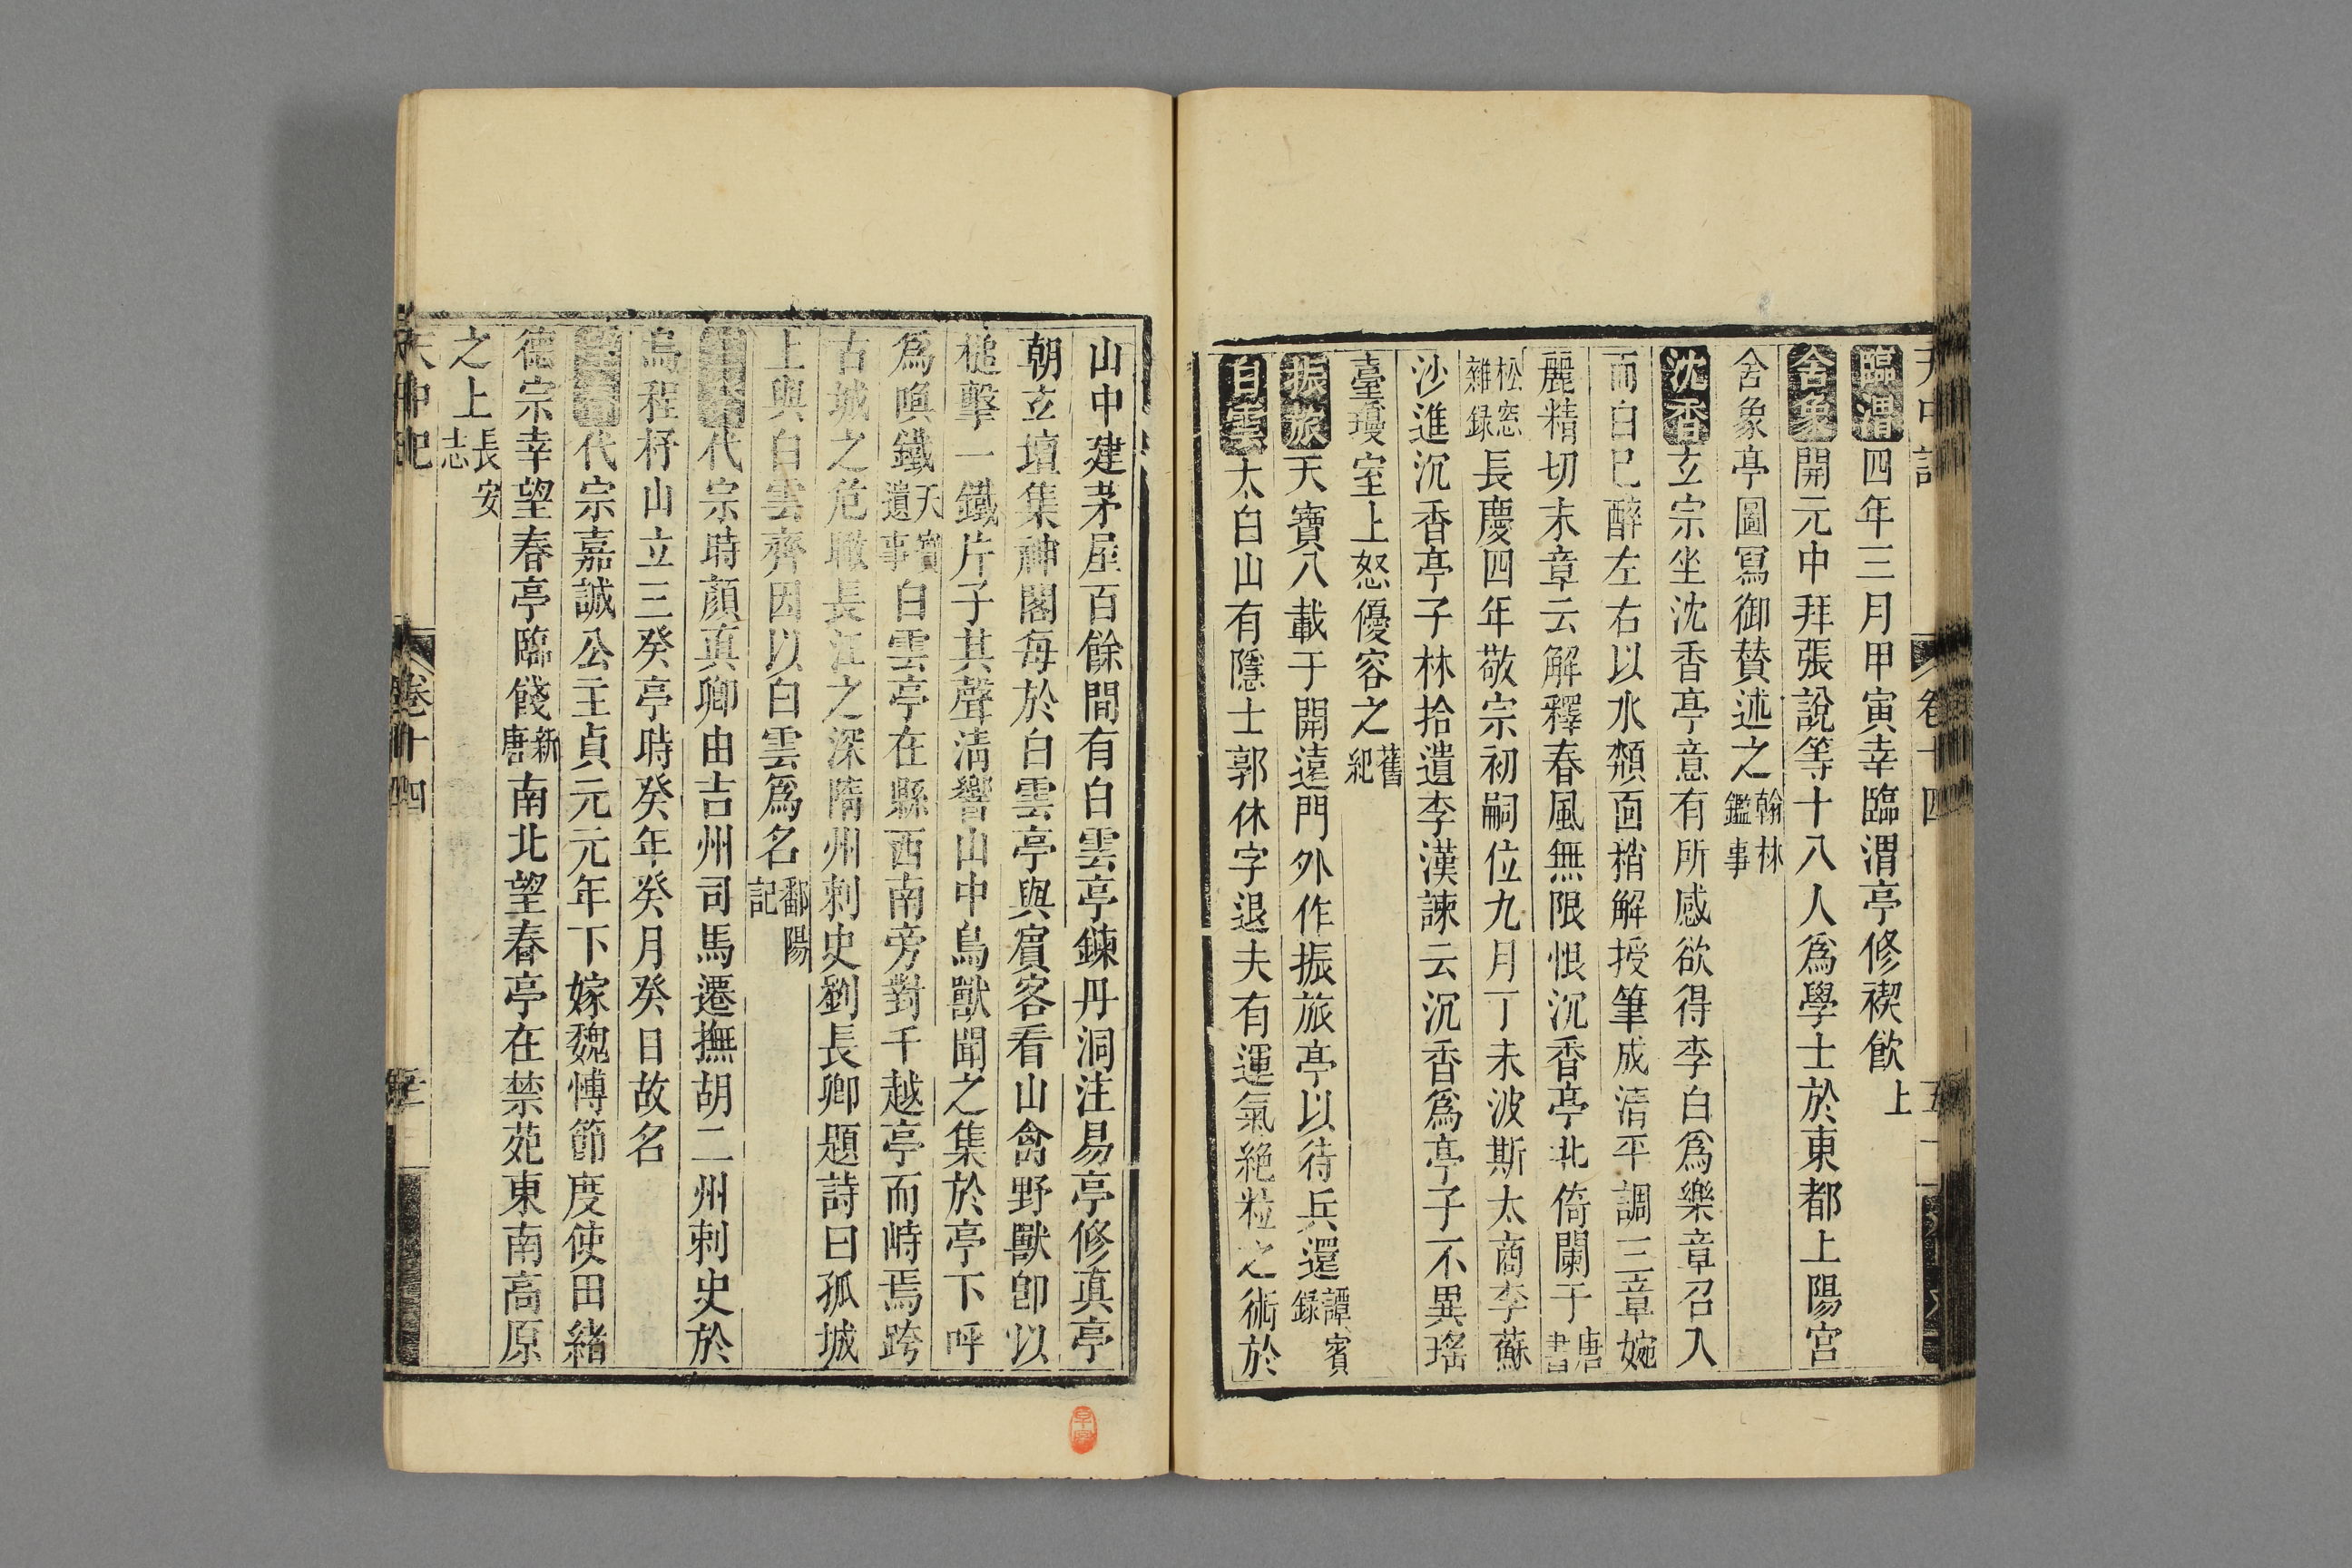 臨渭四年三月甲寅幸臨渭亭修禊飲上
舍象開元中拜張說等十八人爲學士於東都上陽宮
舍象亭圖寫御贊述之翰林鑑事
沈香玄宗坐沈香亭意有所感欲得李白爲樂章召入
而白已醉左右以水頮面稍解授筆成清平調三章婉
麗精切末章云解釋春風無限恨沉香亭北倚闌干唐書
松窓雜録長慶四年敬宗初嗣位九月丁未波斯太商李蘇
沙進沉香亭子林拾遺李漢諫云沉香爲亭子不異瑤
臺瓊室上怒優容之舊紀
振旅天寶八載于開遠門外作振旅亭以待兵還譚賓録
白雲太白山有隱士郭休字退夫有運氣絶粒之術於
山中建茅屋百餘間有白雲亭鍊丹洞注易亭修真亭
朝玄壇集神閣每於白雲亭與賓客看山禽野獸即以
槌擊一鐵片子其聲清響山中鳥獸聞之集於亭下呼
爲喚鐵天寶遺事白雲亭在縣西南旁對千越亭而峙焉跨
古城之危瞰長江之深隋州刺史劉長卿題詩曰孤城
上與白雲齊因以白雲爲名鄱陽記
代宗時顏真卿由吉州司馬遷撫胡二州刺史於
烏程杼山立三癸亭時癸年癸月癸日故名
代宗嘉誠公主貞元元年下嫁魏博節度使田緒
德宗幸望春亭臨餞新唐南北望春亭在禁苑東南高原
之上長安志
天中記
卷十四